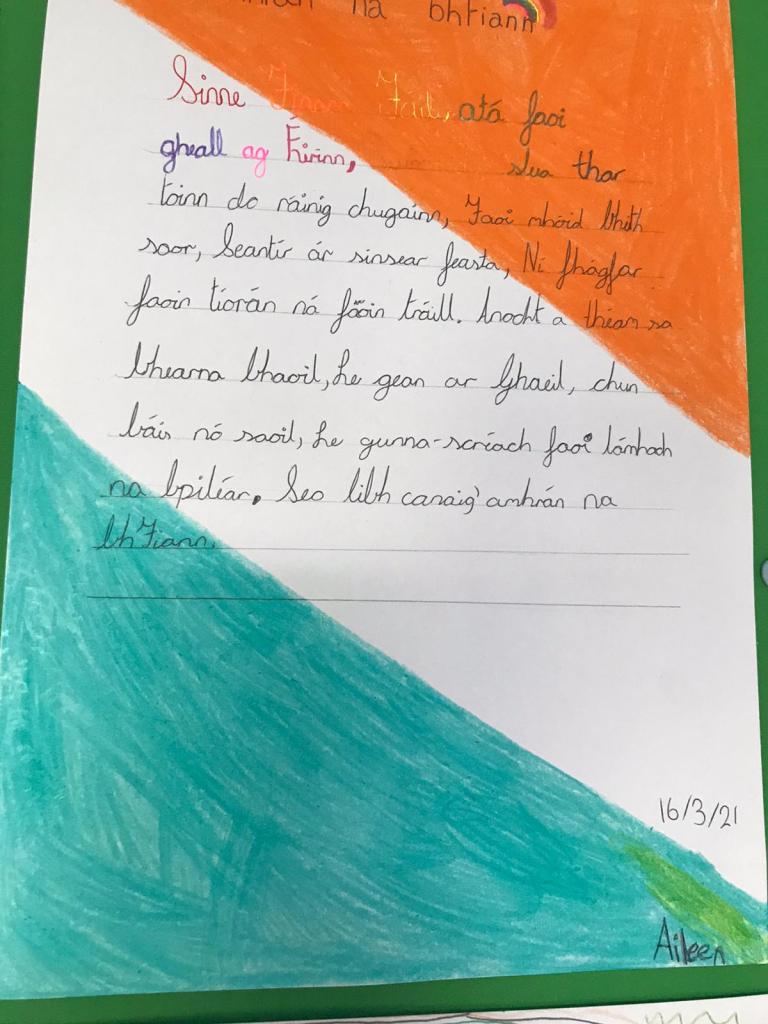 na bhFiann
Sinne Fianna Fáil, atá faoi
gheall ag Éirinn, slua thar
toinn do ráinig chugainn, Faoi mhóid bheith
saor, Seantír ár sinsear feasta, Ní fhágfar
faoin tíorán ná faoin tráill. Anocht a théam sa
bhearna bhaoil, Le gean ar Ghaeil, chun
báis nó saoil, Le gunna-scréach faoi lámhach
na bpiléar. Seo libh canaig' amhrán na
bhFiann.
16/3/21
Aileen